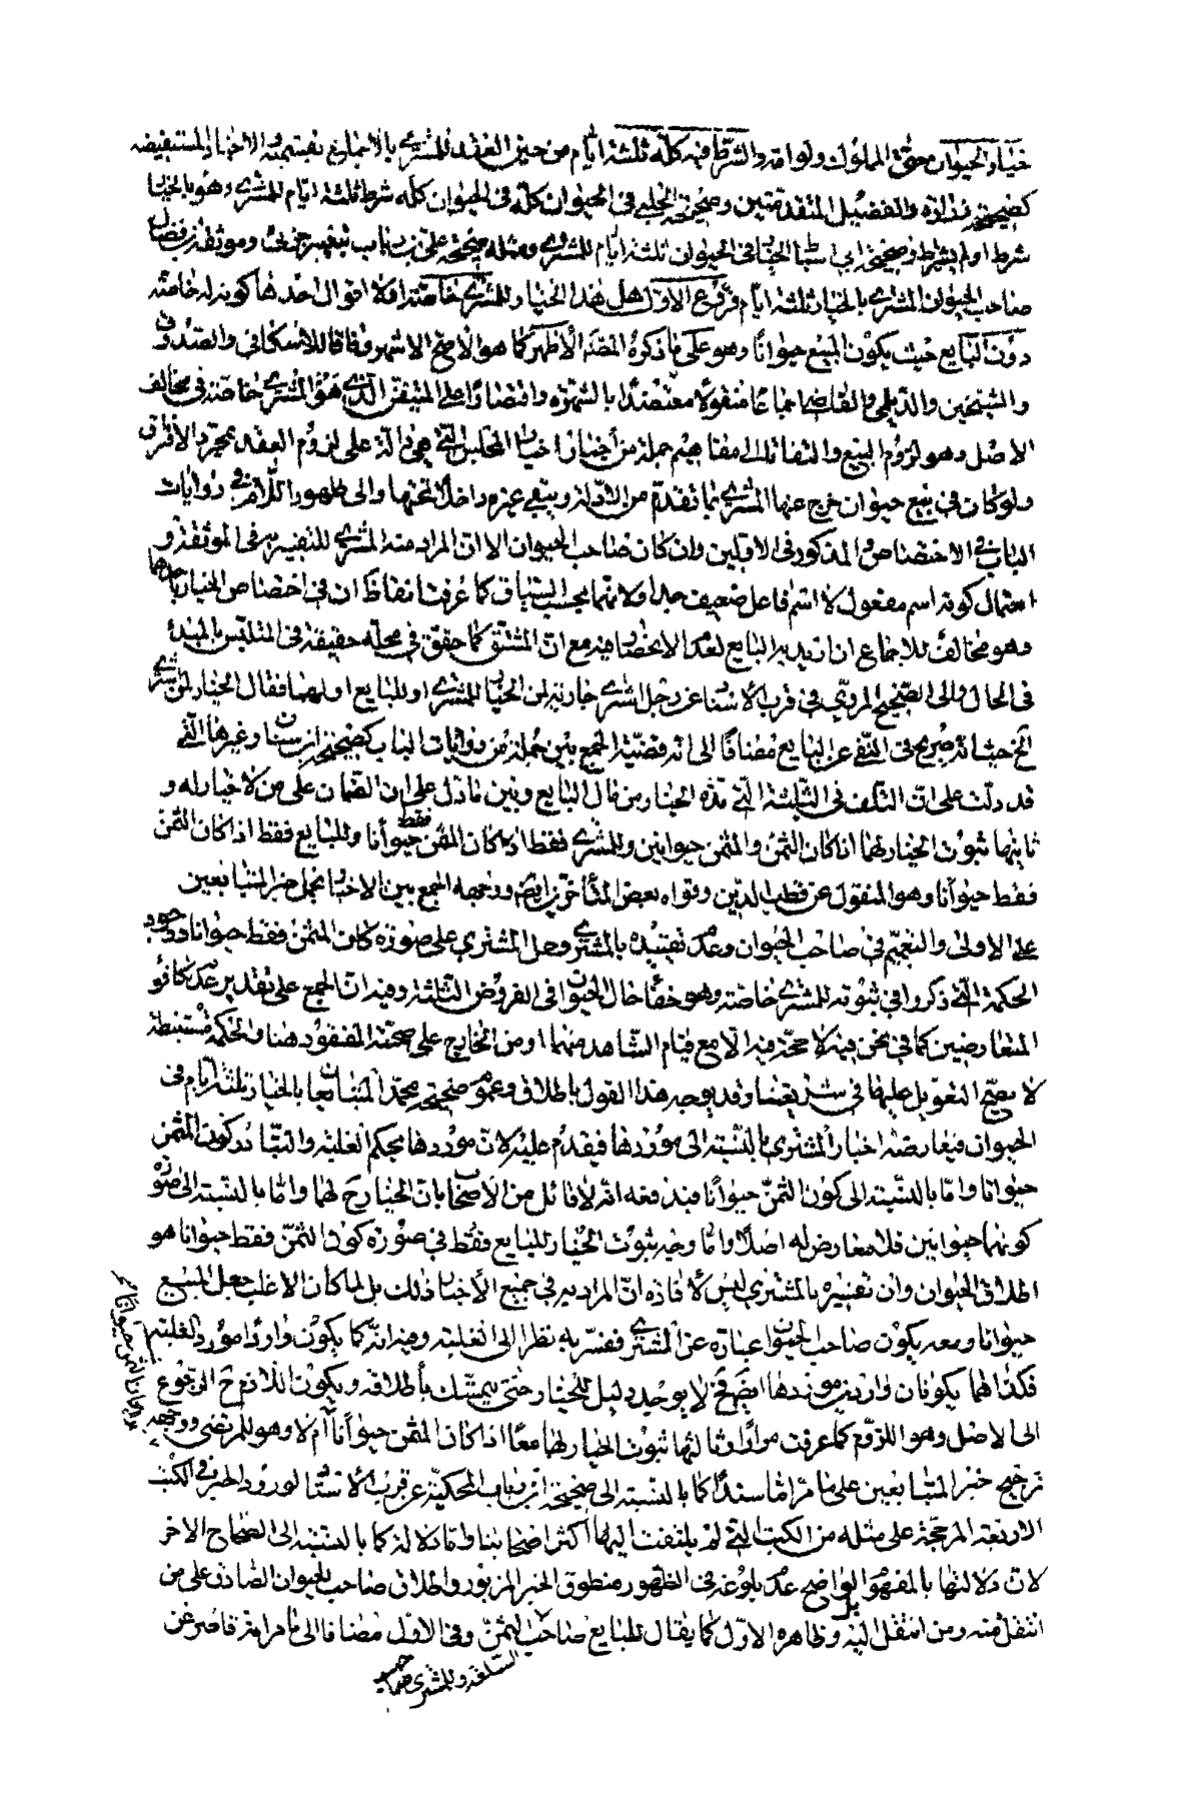 خيار الحيوان حتى المملوك ولو امة والشرط فيه كله ثلثة ايام من حين العقد للمشتري بالاجماع بقسميه والاخبار المستفيضة
كصحيحة زرارة والفضيل المتقدمتين وصحيحة الحلبي في الحيوان كله في الحيوان كله شرط ثلثة ايام للمشتري وهو بالخيار
شرط او لم يشترط وصحيحة ابن اسباط الخيار في الحيوان ثلثة ايام للمشتري ومثله صحيحة علي بن رئاب بتغيير وموثقة ابن فضال
صاحب الحيوان المشتري بالخيار ثلثة ايام فروع الاول هل هذا الخيار للمشتري خاصة ام لا اقوال احدها كونه له خاصة
دون البايع حيث يكون المبيع حيوانا وهو على ما ذكره المصنف الأظهر كما هو الأصح الاشهر وفاقا للاسكافي والصدوق
والشيخين والديلمي والقاضي اجماعا منقولا معتضدا بالشهرة واقتصارا على المتيقن الذي هو المشتري خاصة في مخالف
الاصل وهو لزوم البيع والتفاتا الى مفاهيم جملة من أخبار خيار المجلس التي هي دالة على لزوم العقد بمجرد الافتراق
ولو كان في بيع حيوان خرج عنها المشتري بما تقدم من الادلة وبقي غيره داخلا تحتها والى ظهور اللام في روايات
الباب في الاختصاص والمذكور في الاولين وان كان صاحب الحيوان الا ان المراد منه المشتري للتفسير به في الموثقة و
احتمال كونه اسم مفعول لا اسم فاعل ضعيف جدا ولا سيما بحسب السياق كما عرفت مضافا الى ان في اختصاص الخيار باحدهما
وهو مخالف للاجماع ان اريد به البايع لعدم الانحصار فيه مع ان المشتق كما حقق في محله حقيقة في المتلبس بالمبدأ
في الحال والى الصحيح المروي في قرب الأسناد عن رجل اشترى جارية لمن الخيار للمشتري او للبايع او لهما فقال الخيار لمن اشترى
الخ حيث انه صريح في النفي عن البايع مضافا الى انه قضية الجمع بين جملة من روايات الباب كصحيحة ابن سنان وغيرها التي
قد دلت على ان التلف في الثلثة التي هذه الخيار من مال البايع وبين ما دل على ان الضمان على من لا خيار له و
ثانيها ثبوت الخيار لهما اذا كان الثمن والمثمن حيوانين وللمشتري فقط اذا كان المثمن فقط حيوانا وللبايع فقط اذا كان الثمن
فقط حيوانا وهو المنقول عن قطب الدين وقواه بعض المتأخرين ايضا ووجهه الجمع بين الاخبار بحمل خبر المتبايعين
على الاولى والتعميم في صاحب الحيوان وعدم تقييده بالمشتري وحمل المشتري على صورة كان المثمن فقط حيوانا ووجود
الحكمة التي ذكروا في ثبوته للمشتري خاصة وهو خفاء حال الحيوان في الفروض الثلثة وفيه ان الجمع على تقدير عدم تكافؤ
المتعارضين كما في نحن فيه لا حجة فيه الا مع قيام الشاهد منهما او من الخارج على صحته المفقود هنا والحكمة مستنبطة
لا يصح التعويل عليها في شريعتنا وقد يوجه هذا القول باطلاق وعموم صحيحة محمد المتبايعان بالخيار ثلثة ايام في
الحيوان فيعارضه اخبار المشتري بالنسبة الى موردها فيقدم عليه لان موردها بحكم الغلبة والتبادر كون المثمن
حيوانا واما بالنسبة الى كون الثمن حيوانا فيدفعه انه لا قائل من الاصحاب بان الخيار ح لهما واما بالنسبة الى صورة
كونهما حيوانين فلا معارض له اصلا واما وجه ثبوت الخيار للبايع فقط في صورة كون الثمن فقط حيوانا هو
اطلاق الحيوان وان تفسيره بالمشتري ليس لافادة ان المراد به في جميع الأخبار ذلك بل لما كان الاغلب جعل المبيع
حيوانا ومعه يكون صاحب الحيوان عبارة عن المشتري ففسر به نظرا الى الغلبة وفيه انه كما يكون واردا مورد الغلبة
فكذا لهما يكونان واردين موردها ايضا فح لا يوجد دليل للخيار حتى يتمسك بأطلاقه ويكون اللازم ح الرجوع
الى الاصل وهو اللزوم كما عرفت مرارا وثالثها ثبوت الخيار لهما معا اذا كان المثمن حيوانا أم لا وهو للمرتضى ووجهه
ترجيح خبر المتبايعين على ما مر اما سندا كما بالنسبة الى صحيحة ابن رئاب المحكية عن قرب الأسناد لورود الخبر في الكتب
الاربعة المرجحة على مثله من الكتب التي لم يلتفت اليها اكثر اصحابنا واما دلالة كما بالنسبة الى الصحاح الاخر
لان دلالتها بالمفهوم الواضح عدم بلوغه في الظهور منطوق الخبر المزبور واطلاق صاحب الحيوان الصادق على من
انتقل منه ومن انتقل اليه بل وظاهره الاول كما يقال للبايع صاحب الثمن وفي الاول مضافا الى ما مر انه قاصر عن
السلعة وللمشتري